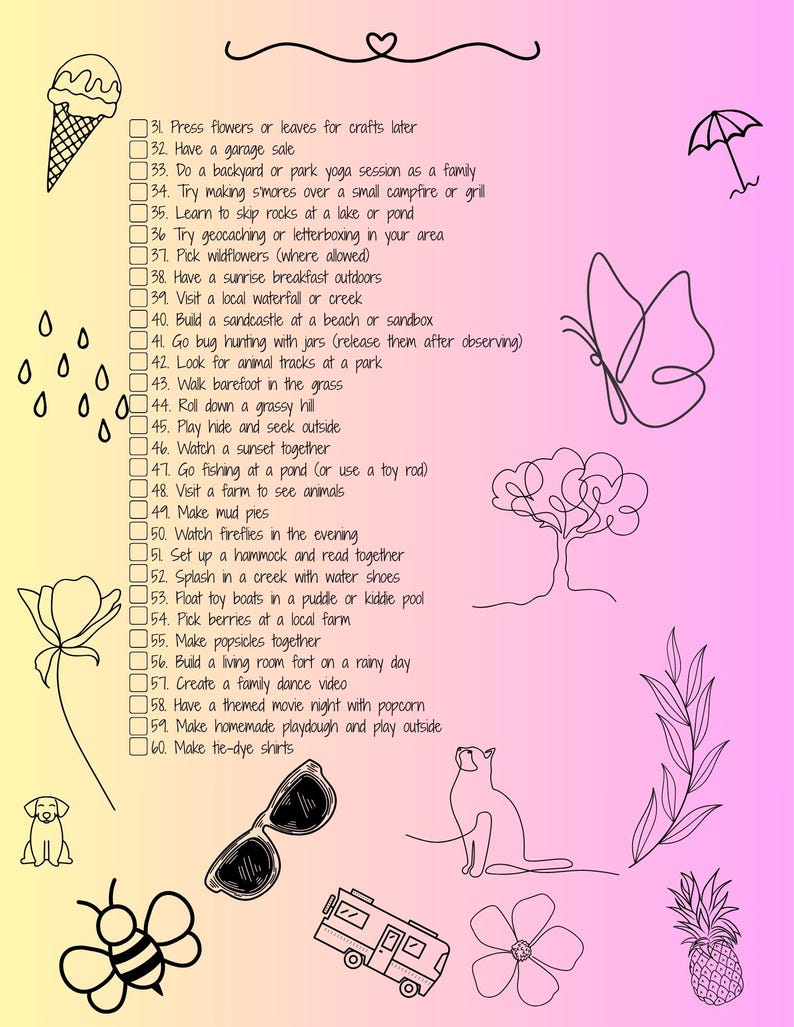 31. Press flowers or leaves for crafts later
32. Have a garage sale
33. Do a backyard or park yoga session as a family
34. Try making s'mores over a small campfire or grill
35. Learn to skip rocks at a lake or pond
36 Try geocaching or letterboxing in your area
37. Pick wildflowers (where allowed)
38. Have a sunrise breakfast outdoors
39. Visit a local waterfall or creek
40. Build a sandcastle at a beach or sandbox
41. Go bug hunting with jars (release them after observing)
42. Look for animal tracks at a park
43. Walk barefoot in the grass
44. Roll down a grassy hill
45. Play hide and seek outside
46. Watch a sunset together
47. Go fishing at a pond (or use a toy rod)
48. Visit a farm to see animals
49. Make mud pies
50. Watch fireflies in the evening
51. Set up a hammock and read together
52. Splash in a creek with water shoes
53. Float toy boats in a puddle or kiddie pool
54. Pick berries at a local farm
55. Make popsicles together
56. Build a living room fort on a rainy day
57. Create a family dance video
58. Have a themed movie night with popcorn
59. Make homemade playdough and play outside
60. Make tie-dye shirts